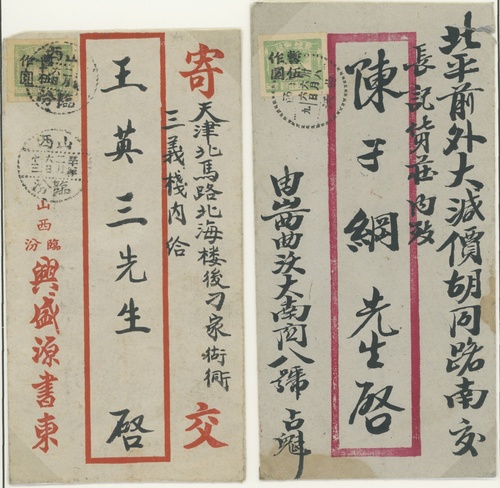 北平前外大減價胡同路南交
長記貨莊内致
陳子綱先生啓
由山西曲沃大南関八號
暫作
伍圓
寄
天津北馬路北海楼後刁家衚衕
交
三義棧内給
王英三先生 啓
山西
臨汾
山西臨汾
興盛源書柬